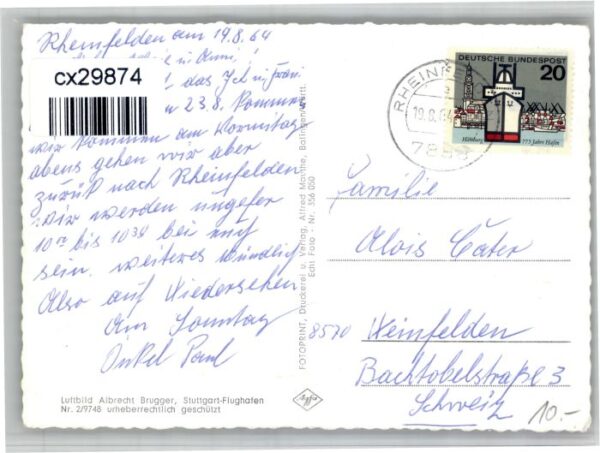 Rheinfelden am 19.8.64
cx29874
das
23.8. kommen
wir kommen am Vormitag
abens gehen wir aber
zurük nach Rheinfelden
wir werden ungefer
10 bis 1030 bei
sein. weiteres mündlich
Also auf Wiedersehen
Am Sonntag
Onkel Paul
Luftbild Albrecht Brugger, Stuttgart-Flughafen
Nr. 2/9748 urheberrechtlich geschützt
FOTOPRINT, Druckerei u. Verlag, Alfred Mauthe, Balingen/Württ.
Echt Foto - Nr. 356 050
Agfa
RHEINFE
19.8.64
DEUTSCHE BUNDESPOST
20
Hamburg
775 Jahre Hafen
Familie
Alois Cater
8570 Weinfelden
Bachtobelstraße 3
Schweiz
10.-